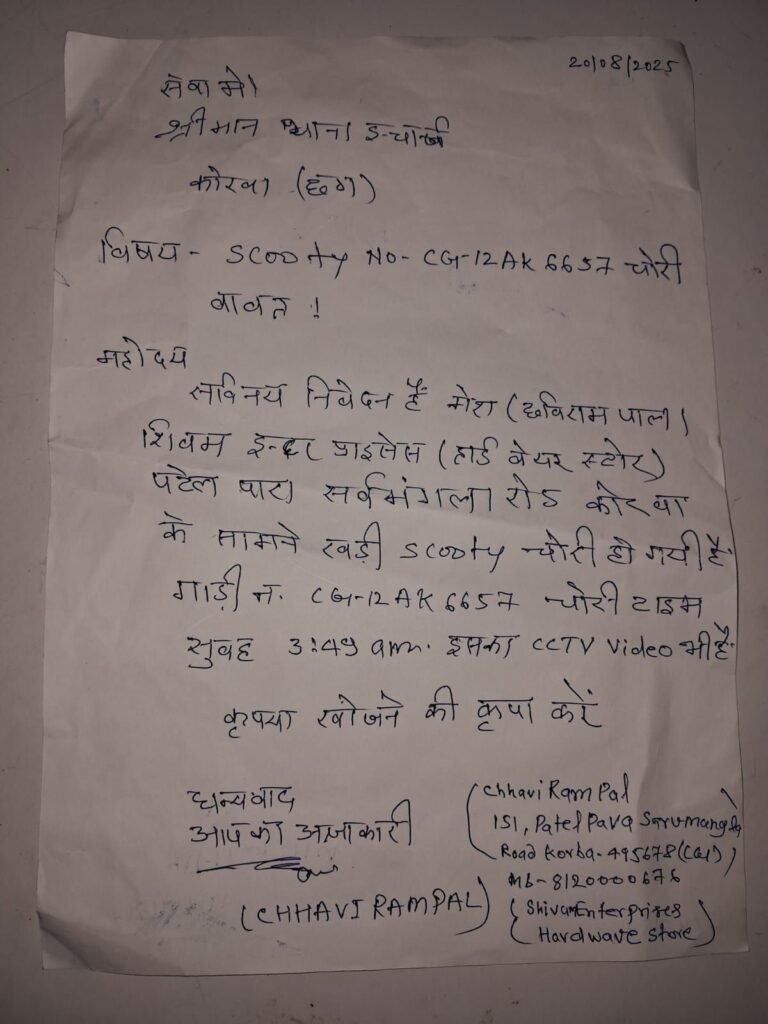 20/08/2025
सेवा मे।
श्रीमान थाना इन्चार्ज
कोरबा (छग)
विषय - Scooty No- CG-12AK 6657 चोरी
बावत !
महोदय
सविनय निवेदन है मेरा (छविराम पाल)
शिवम इन्टर प्राइसेस (हार्ड वेयर स्टोर)
पटेल पारा सर्वमंगला रोड कोरबा
के सामने खड़ी Scooty चोरी हो गयी है
गाड़ी न. CG-12AK 6657 चोरी टाइम
सुबह 3:49 am. इसका CCTV Video भी है
कृपया खोजने की कृपा करें
धन्यवाद
आपका अज्ञाकारी
(CHHAVI RAMPAL)
(Chhavi Ram Pal
151, Patel Para Sarvmangla
Road Korba - 495678 (CG))
Mb - 8120000676
(Shivam Enterprises
Hardwave Store)